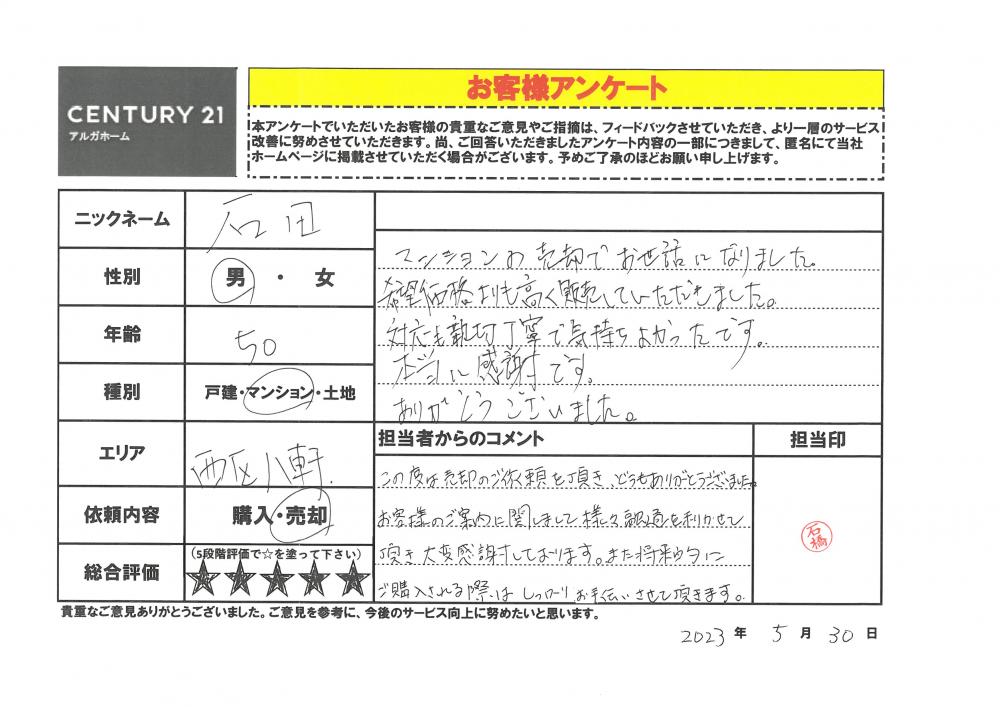 CENTURY 21
アルガホーム
お客様アンケート
本アンケートでいただいたお客様の貴重なご意見やご指摘は、フィードバックさせていただき、より一層のサービス
改善に努めさせていただきます。尚、ご回答いただきましたアンケート内容の一部につきまして、匿名にて当社
ホームページに掲載させていただく場合がございます。予めご了承のほどお願い申し上げます。
ニックネーム 石田
性別 男 ・ 女
年齢 50
種別 戸建・マンション・土地
エリア 西区八軒
依頼内容 購入・売却
総合評価 (5段階評価で☆を塗って下さい)
★★★★★
マンションの売却でお世話になりました。
希望価格よりも高く販売していただきました。
対応も親切丁寧で気持ちよかったです。
本当に感謝です。
ありがとうございました。
担当者からのコメント
担当印
この度は売却のご依頼を頂き、どうもありがとうございました。
お客様のご案内に関しまして様々融通を利かせて
頂き大変感謝しております。また将来的に
ご購入される際はしっかりお手伝いさせて頂きます。
石橋
貴重なご意見ありがとうございました。ご意見を参考に、今後のサービス向上に努めたいと思います。
2023 年 5 月 30 日